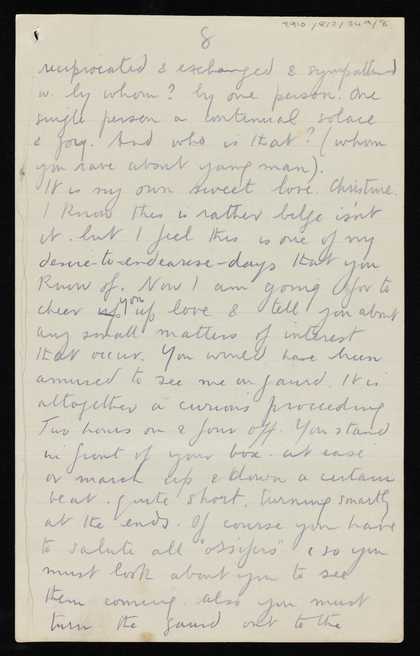 8
reciprocated & exchanged & sympathised
w. by whom? by one person. One
single person a continual solace
& joy. And who is that? (whom
you rave about young man).
It is my own sweet love. Christine.
I know this is rather bilge isn't
it. but I feel this is one of my
desire-to-endearise-days that you
know of. Now I am going for to
cheer you up love & tell you about
any small matters of interest
that occur. You would have been
amused to see me on gaurd. It is
altogether a curious proceeding
Two hours on & four off. You stand
in front of your box. at ease
or march up & down a certain
beat. quite short, turning smartly
at the ends. Of course you have
to salute all "ossifers" & so you
must look about you to see
them coming. also you must
turn the gaurd out to the